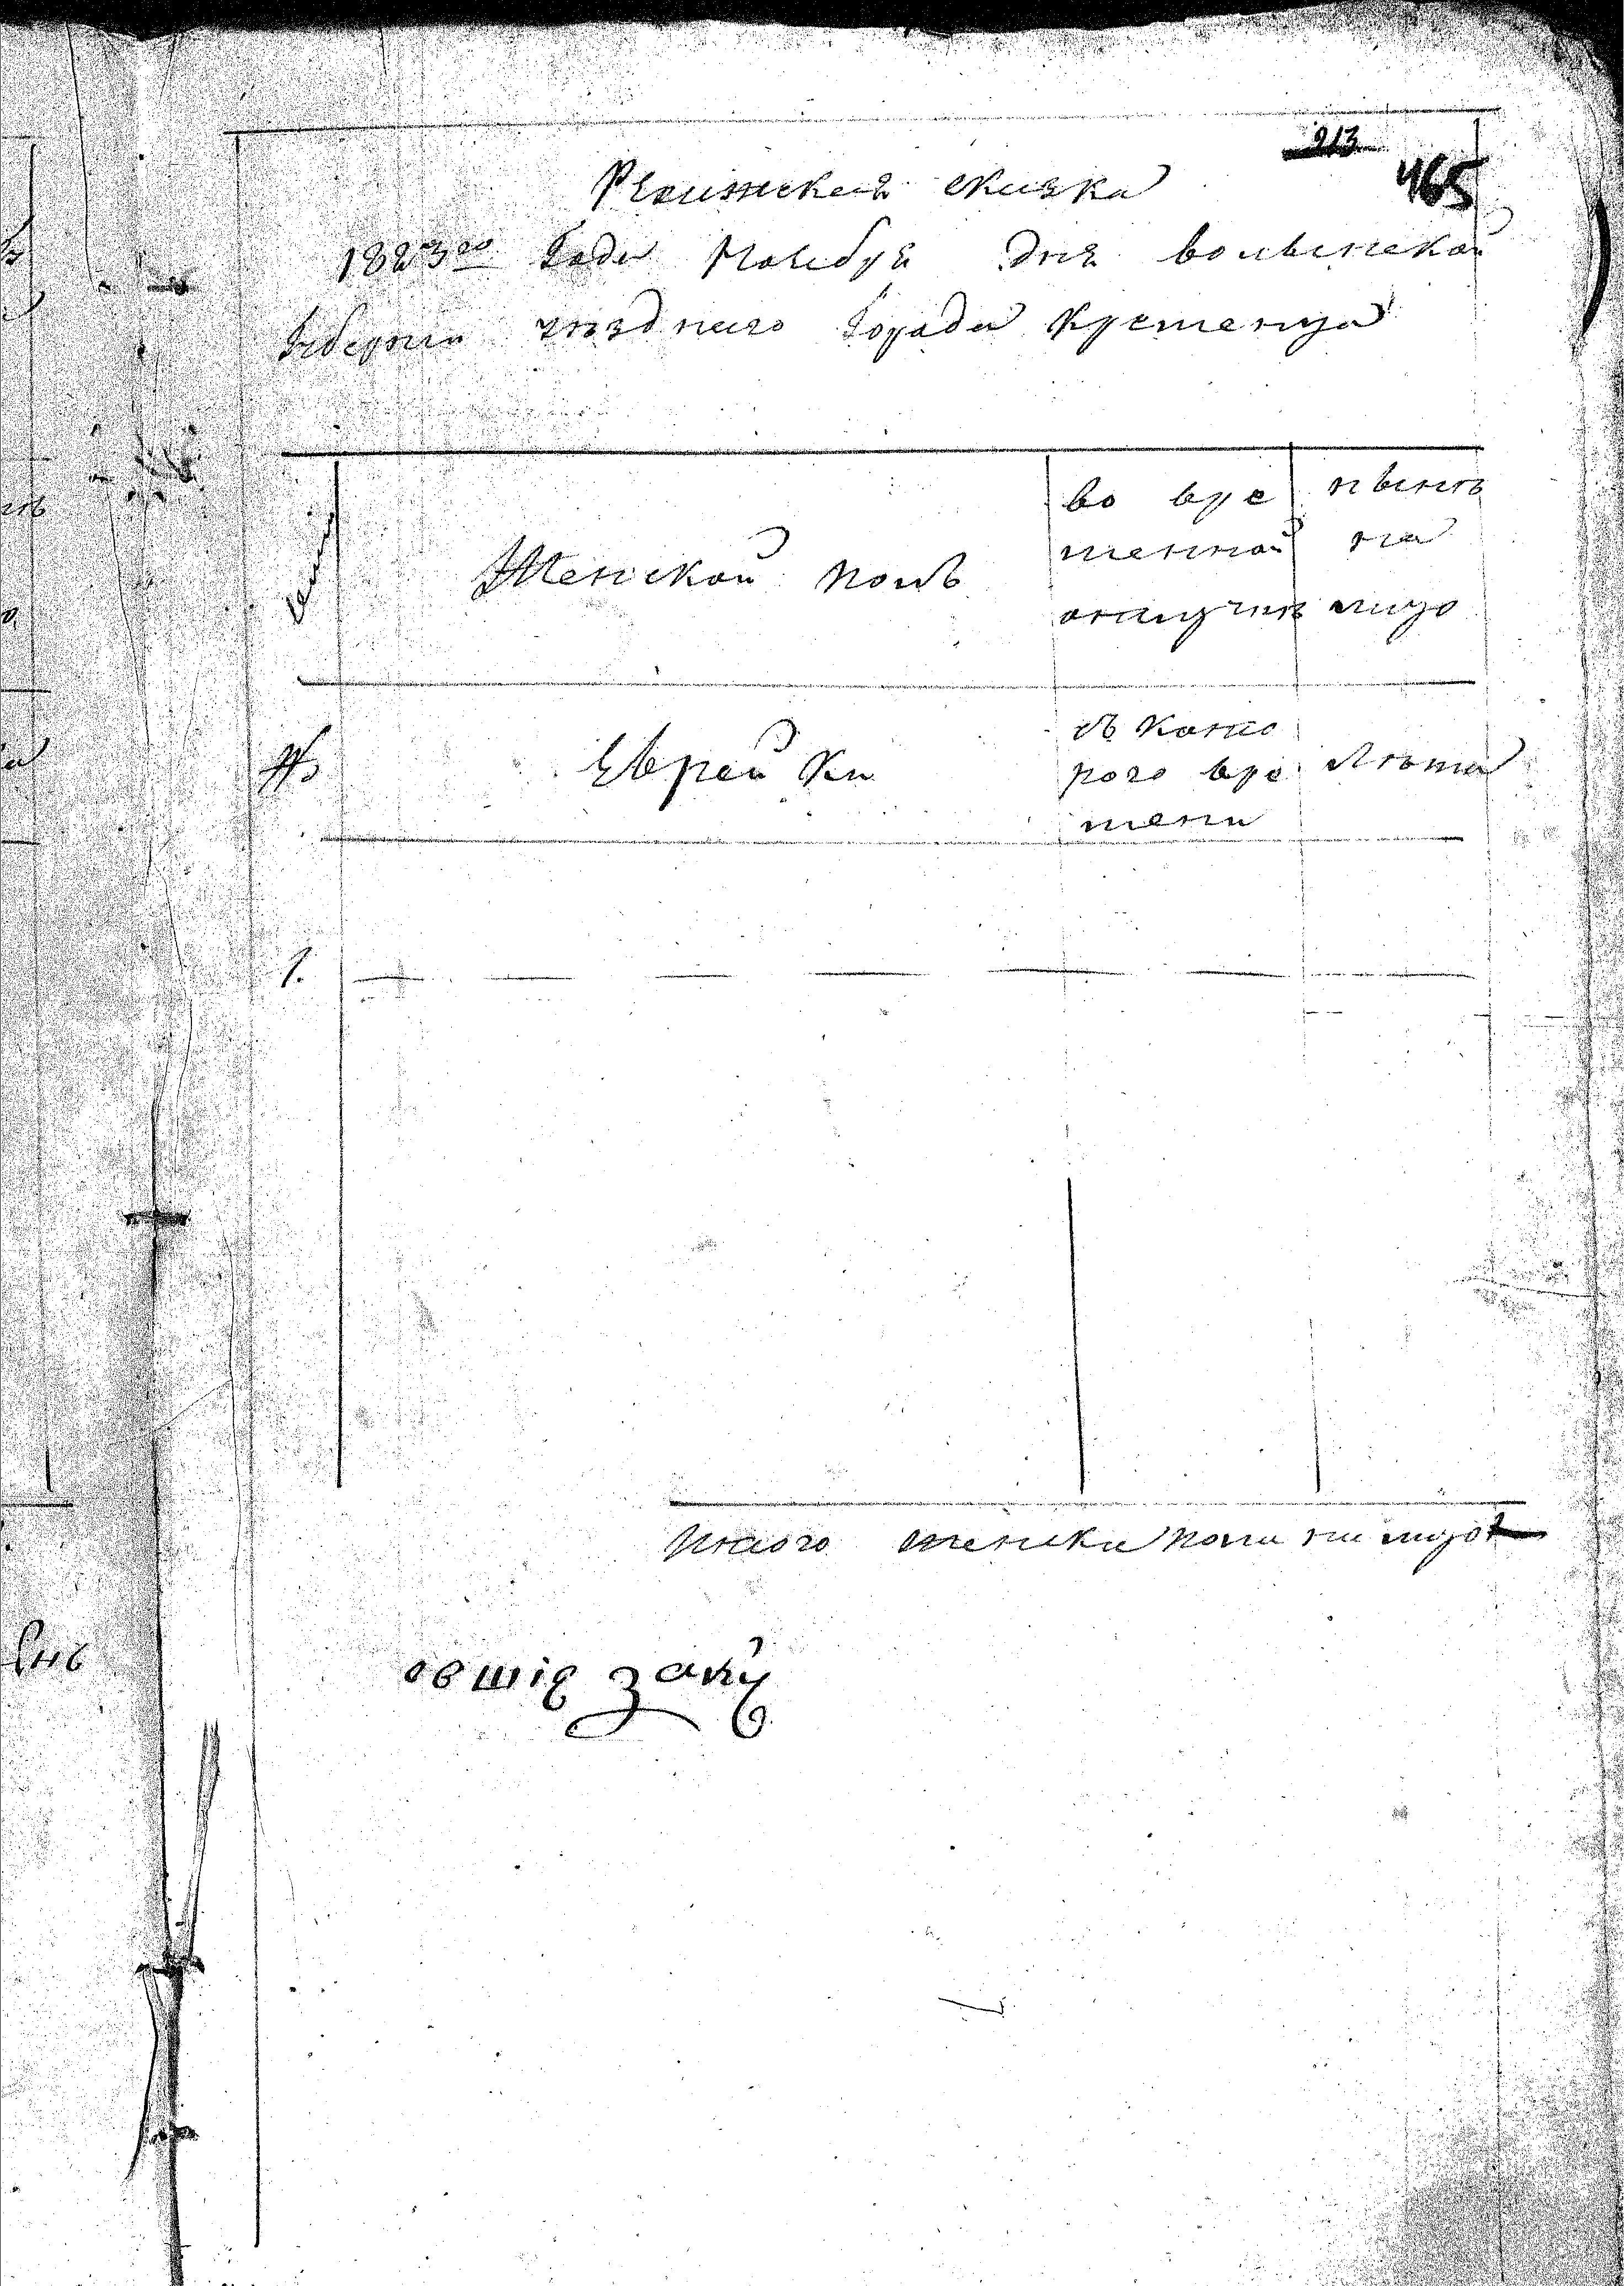 213
465
Ревижская скаска
1823го Года Ноября Дня волынской
Губернии уѣзднаго Города Кременца
Семьи
Женской полъ
во вре
менной
отлучкѣ
нынѣ
на
лицо
№
Еврейки
съ кото
рого вре
мени
Лѣта
1.
Итого женска пола на лицо